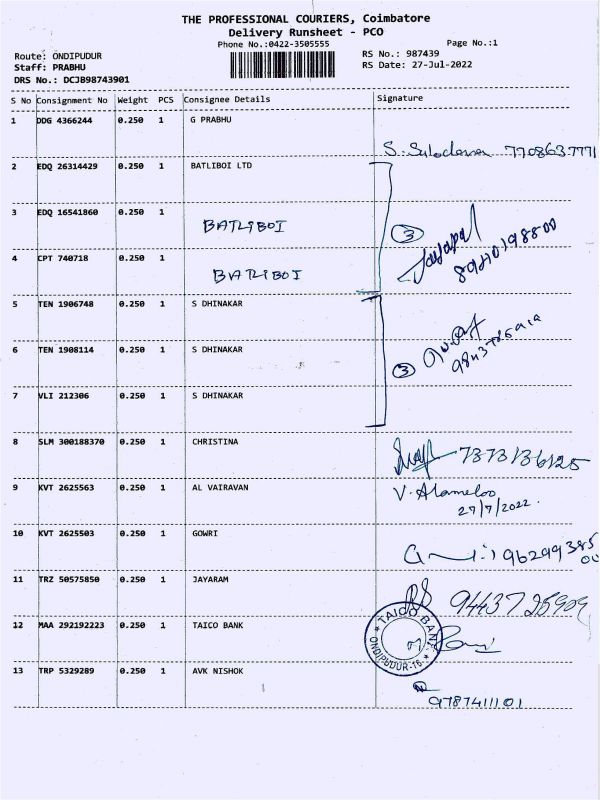 THE PROFESSIONAL COURIERS, Coimbatore
Delivery Runsheet - PCO
Phone No.:0422-3505555
Page No.:1
Route: ONDIPUDUR
RS No.: 987439
Staff: PRABHU
RS Date: 27-Jul-2022
DRS No.: DCJB98743901
S No Consignment No Weight PCS Consignee Details Signature
1 DDG 4366244 0.250 1 G PRABHU
7708637771
2 EDQ 26314429 0.250 1 BATLIBOI LTD
3 EDQ 16541860 0.250 1 BATLIBOI
3
4 CPT 740718 0.250 1 BATLIBOI
5 TEN 1906748 0.250 1 S DHINAKAR
6 TEN 1908114 0.250 1 S DHINAKAR
3
7 VLI 212306 0.250 1 S DHINAKAR
8 SLM 300188370 0.250 1 CHRISTINA
7373136125
9 KVT 2625563 0.250 1 AL VAIRAVAN
V. Alameloo
27/7/2022.
10 KVT 2625503 0.250 1 GOWRI
11 TRZ 50575850 0.250 1 JAYARAM
12 MAA 292192223 0.250 1 TAICO BANK
TAICO BANK
ONDIPUDUR-16
13 TRP 5329289 0.250 1 AVK NISHOK
9787411101